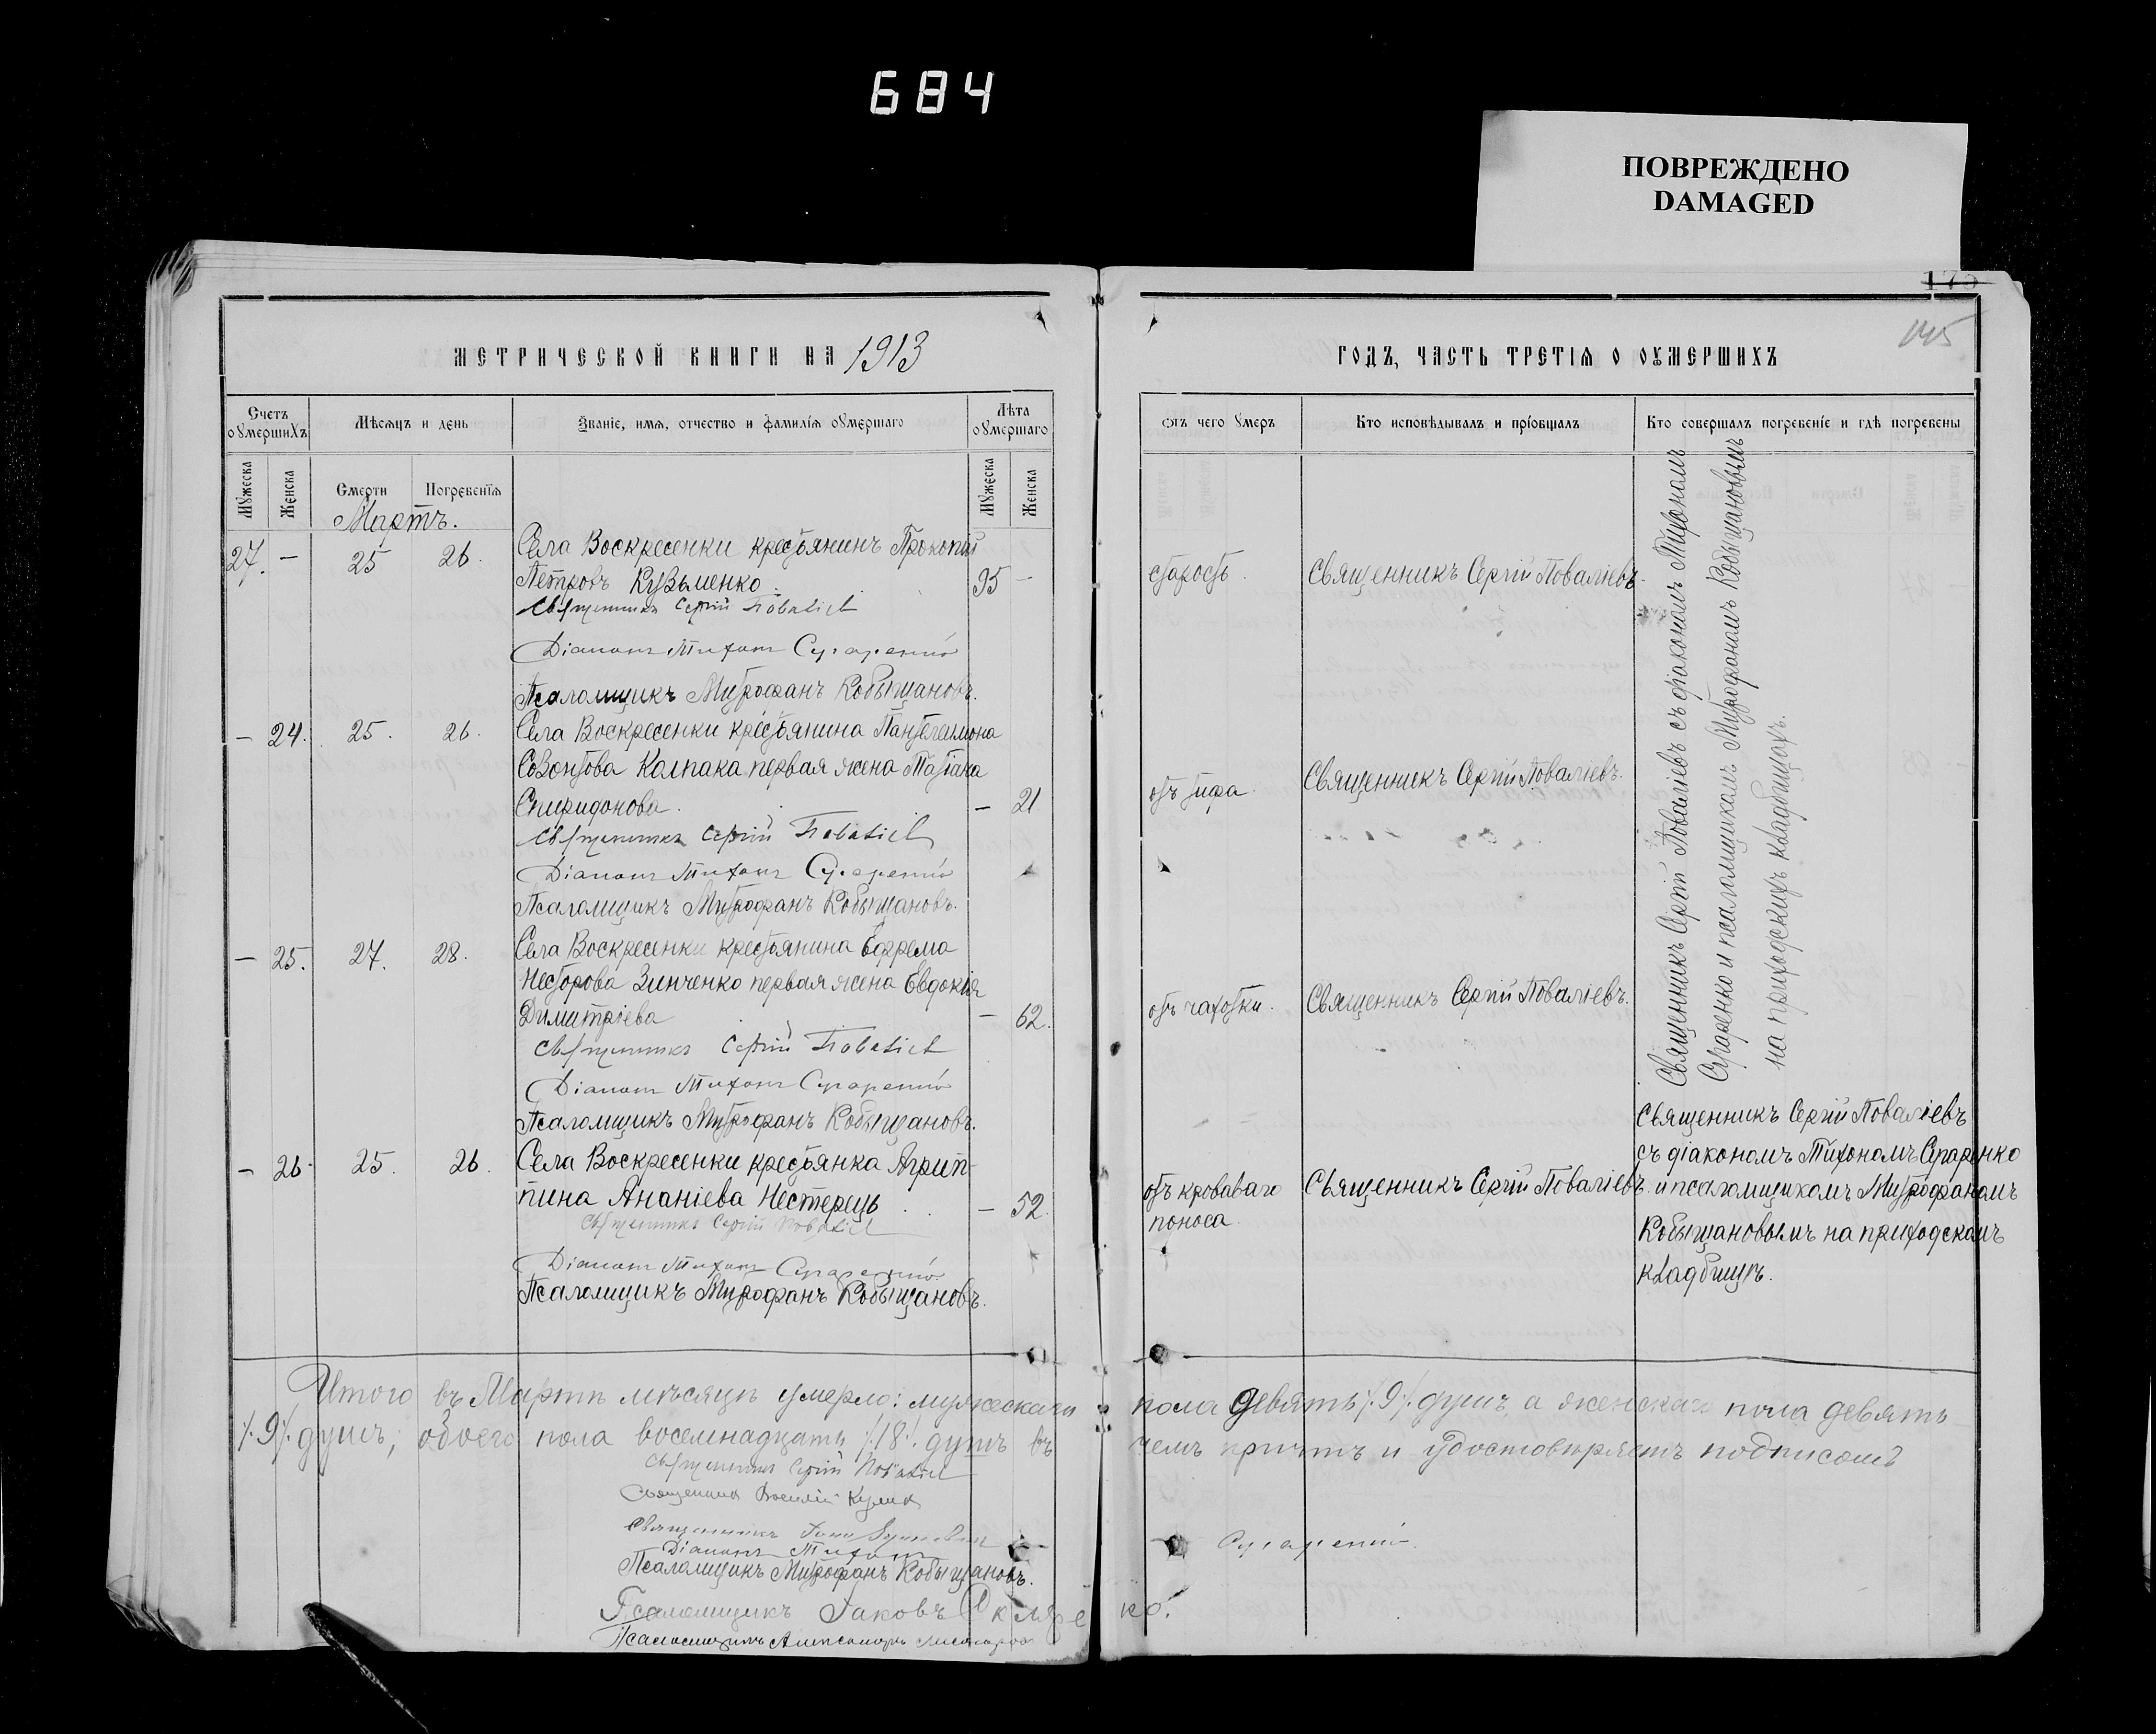 684
ПОВРЕЖДЕНО
DAMAGED
175
145
МЕТРИЧЕСКОЙ КНИГИ НА 1913
ГОДЪ, ЧАСТЬ ТРЕТІЯ О ОУМЕРШИХЪ
Счетъ оумершихъ
Мѣсяцъ и день
Званіе, имя, отчество и фамилія оумершаго
Лѣта оумершаго
Мужеска
Женска
Смерти
Погребенія
Мужеска
Женска
Мартъ.
27. – 25 26.
Села Воскресенки крестьянинъ Прокопій
Петровъ Кузьменко. 95 –
Священникъ Сергій Поваліевъ
Діаконъ Тихонъ Сугаренко
Псаломщикъ Митрофанъ Кобыщановъ.
– 24. 25. 26.
Села Воскресенки крестьянина Пантелеимона
Созонтова Колпака первая жена Татіана
Спиридонова. – 21.
Священникъ Сергій Поваліевъ
Діаконъ Тихонъ Сугаренко
Псаломщикъ Митрофанъ Кобыщановъ.
– 25. 27. 28.
Села Воскресенки крестьянина Ефрема
Несторова Зинченко первая жена Евдокія
Димитріева – 62.
Священникъ Сергій Поваліевъ
Діаконъ Тихонъ Сугаренко
Псаломщикъ Митрофанъ Кобыщановъ.
– 26. 25. 26.
Села Воскресенки крестьянка Агрип-
пина Ананіева Нестерець – 52.
Священникъ Сергій Поваліевъ
Діаконъ Тихонъ Сугаренко
Псаломщикъ Митрофанъ Кобыщановъ.
Отъ чего умеръ
Кто исповѣдывалъ и пріобщалъ
Кто совершалъ погребеніе и гдѣ погребены
старость. Священникъ Сергій Поваліевъ.
отъ тифа. Священникъ Сергій Поваліевъ.
отъ чахотки. Священникъ Сергій Поваліевъ.
отъ кроваваго Священникъ Сергій Поваліевъ.
поноса.
Священникъ Сергій Поваліевъ съ діакономъ Тихономъ
Сугаренко и псаломщикомъ Митрофаномъ Кобыщановымъ
на приходскихъ кладбищахъ.
Священникъ Сергій Поваліевъ
съ діакономъ Тихономъ Сугаренко
и псаломщикомъ Митрофаномъ
Кобыщановымъ на приходскомъ
кладбищѣ.
Итого въ Мартѣ мѣсяцѣ умерло: мужескаго пола девять /.9/. душъ, а женскаго пола девять
/.9/. душъ, обоего пола восемнадцать /.18/. душъ въ чемъ причтъ и удостовѣряетъ подписомъ
Священникъ Сергій Поваліевъ
Священникъ Василій
Священникъ
Діаконъ Тихонъ Сугаренко
Псаломщикъ Митрофанъ Кобыщановъ.
Псаломщикъ Іаковъ Скляренко.
Псаломщикъ Александръ